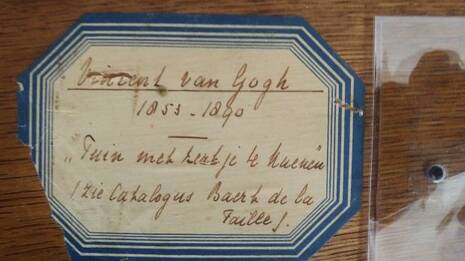 Vincent van Gogh
1853-1890
„Tuin met kerkje te Nuenen
/ zie Catalogus Baert de la
Faille /.